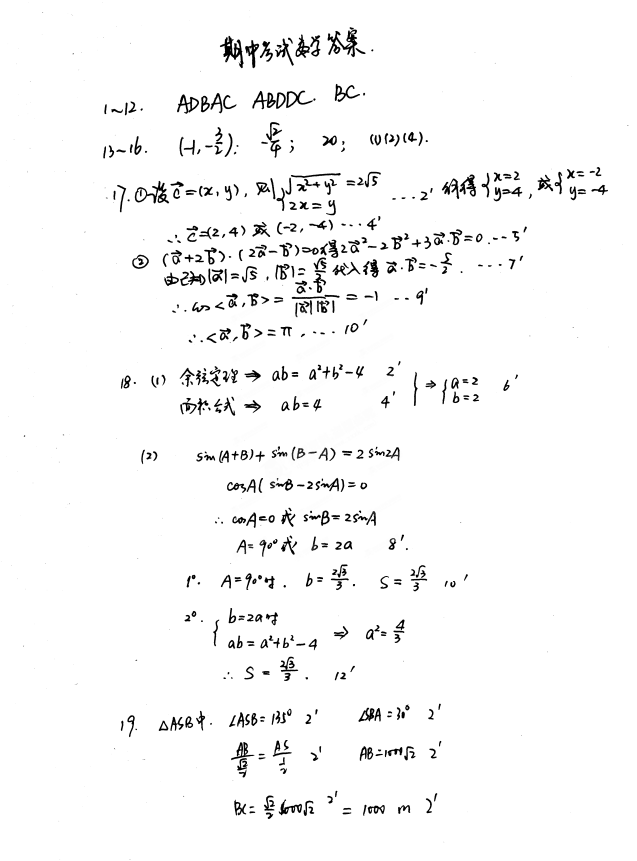 期中考试数学答案.
1~12. ADBAC ABDDC. BC.
13~16. (-1,-3/2); -√2/4; 20; (1)(2)(4).
17.①设c⃗=(x,y), 则{√(x²+y²)=2√5 2x=y ...2' 解得{x=2 y=4, 或{x=-2 y=-4
∴c⃗=(2,4)或(-2,-4)...4'
②(a⃗+2b⃗)·(2a⃗-b⃗)=0得2a⃗²-2b⃗²+3a⃗·b⃗=0...5'
由已知|a⃗|=√5, |b⃗|=√5/2代入得a⃗·b⃗=-5/2. ...7'
∴cos<a⃗,b⃗>=a⃗·b⃗/|a⃗||b⃗|=-1 ..9'
∴<a⃗,b⃗>=π, ....10'
18. (1) 余弦定理⇒ab=a²+b²-4 2'
面积公式⇒ab=4 4' }⇒{a=2 b=2 6'
(2) sin(A+B)+sin(B-A)=2sin2A
cosA(sinB-2sinA)=0
∴cosA=0或sinB=2sinA
A=90°或b=2a 8'.
1°. A=90°时. b=2√3/3. S=2√3/3 10'
2°. {b=2a时
ab=a²+b²-4 ⇒ a²=4/3
∴S=2√3/3. 12'
19. △ASB中. ∠ASB=135° 2' ∠SBA=30° 2'
AB/(√2/2)=AS/(1/2) 2' AB=1000√2 2'
BC=√2/2·1000√2 2' =1000 m 2'